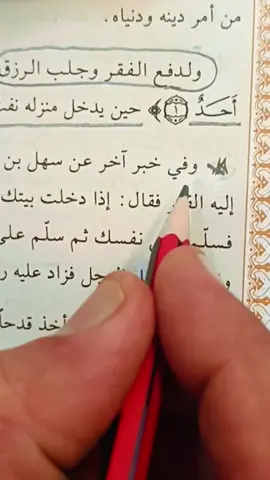 من أمر دينه ودنياه.
ولدفع الفقر وجلب الرزق
أَحَدٌ ﴿١﴾ حين يدخل منزله
وفي خبر آخر عن سهل بن
إليه فقال: إذا دخلت بيتك
نفسك ثم سلّم
فزاد عليه
أخذ قدحاً